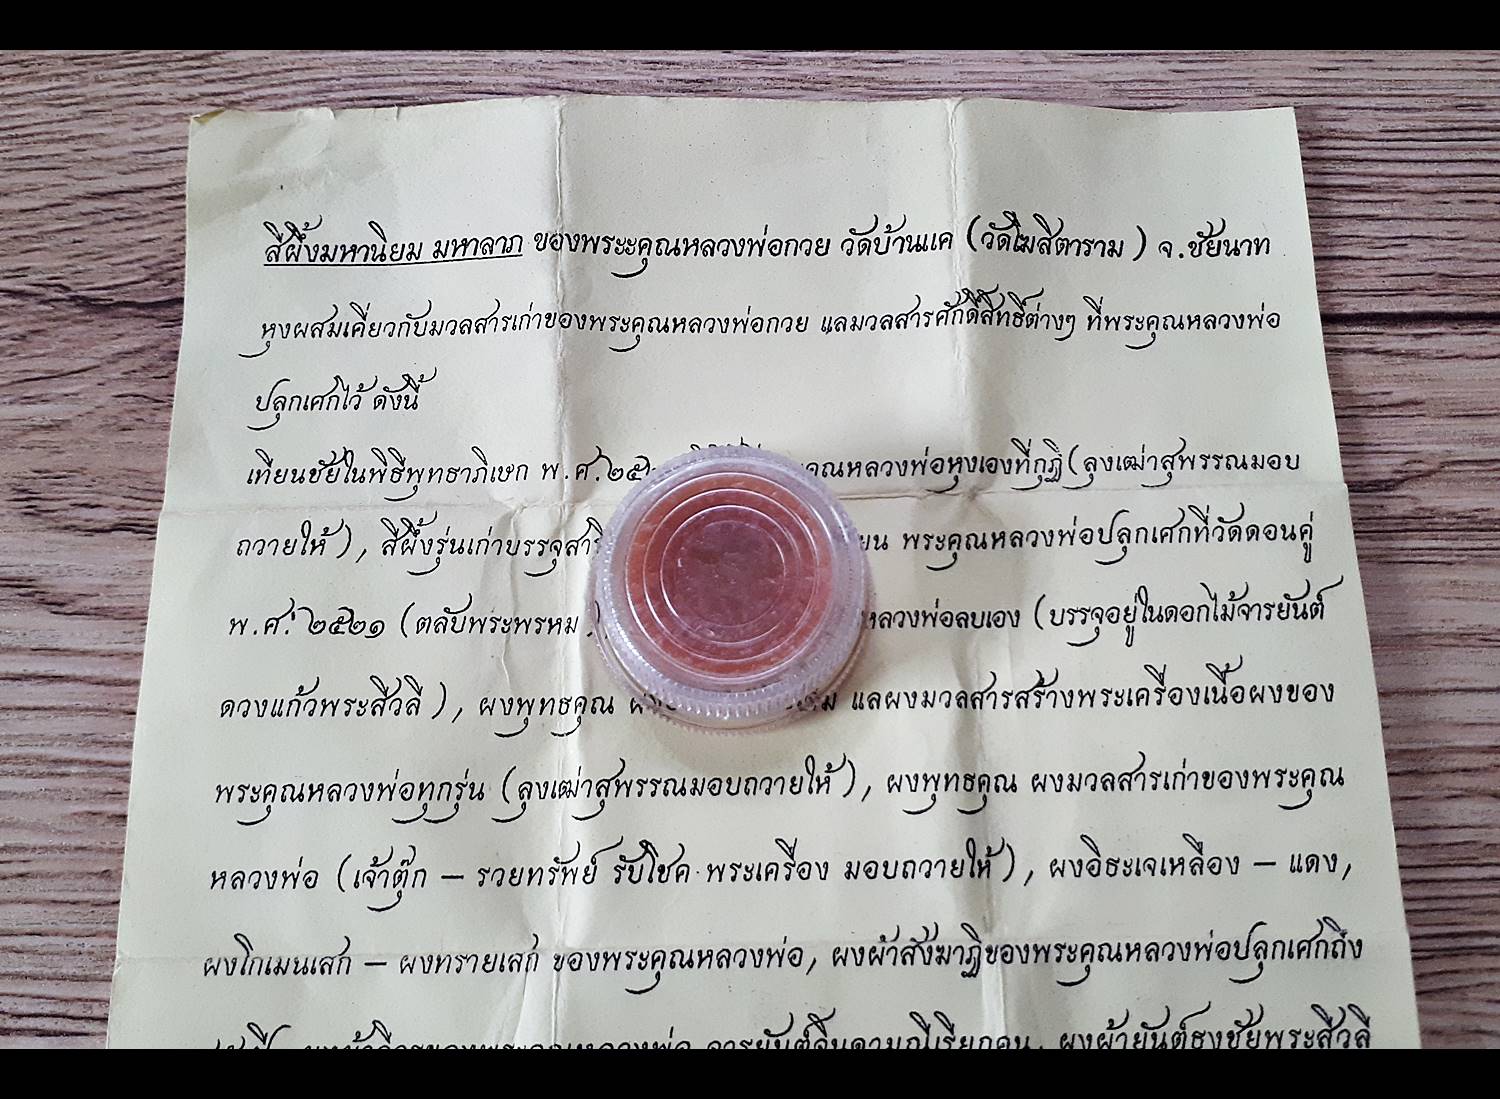 สีผึ้งมหานิยม มหาลาภ ของพระะคุณหลวงพ่อกวย วัดบ้านแค (วัดโฆสิตาราม) จ.ชัยนาท
หุงผสมเคี่ยวกับมวลสารเก่าของพระคุณหลวงพ่อกวย แลมวลสารศักดิ์สิทธิ์ต่างๆ ที่พระคุณหลวงพ่อ
ปลุกเศกไว้ ดังนี้
เทียนชัยในพิธีพุทธาภิเษก พ.ศ. คุณหลวงพ่อหุงเองที่กุฏิ(ลุงเฒ่าสุพรรณมอบ
ถวายให้), สีผึ้งรุ่นเก่าบรรจุ พระคุณหลวงพ่อปลุกเศกที่วัดดอนคู่
พ.ศ. ๒๕๒๑ (ตลับพระพรหม หลวงพ่อลบเอง (บรรจุอยู่ในดอกไม้จารยันต์
ดวงแก้วพระสีวลี), ผงพุทธคุณ แลผงมวลสารสร้างพระเครื่องเนื้อผงของ
พระคุณหลวงพ่อทุกรุ่น (ลุงเฒ่าสุพรรณมอบถวายให้), ผงพุทธคุณ ผงมวลสารเก่าของพระคุณ
หลวงพ่อ (เจ้าตุ๊ก – รวยทรัพย์ รับโชค พระเครื่อง มอบถวายให้), ผงอิธะเจเหลือง – แดง,
ผงโกเมนเสก – ผงทรายเสก ของพระคุณหลวงพ่อ, ผงผ้าสังฆาฏิของพระคุณหลวงพ่อปลุกเศกถึง
ผงผ้ายันต์ธงชัยพระสีวลี